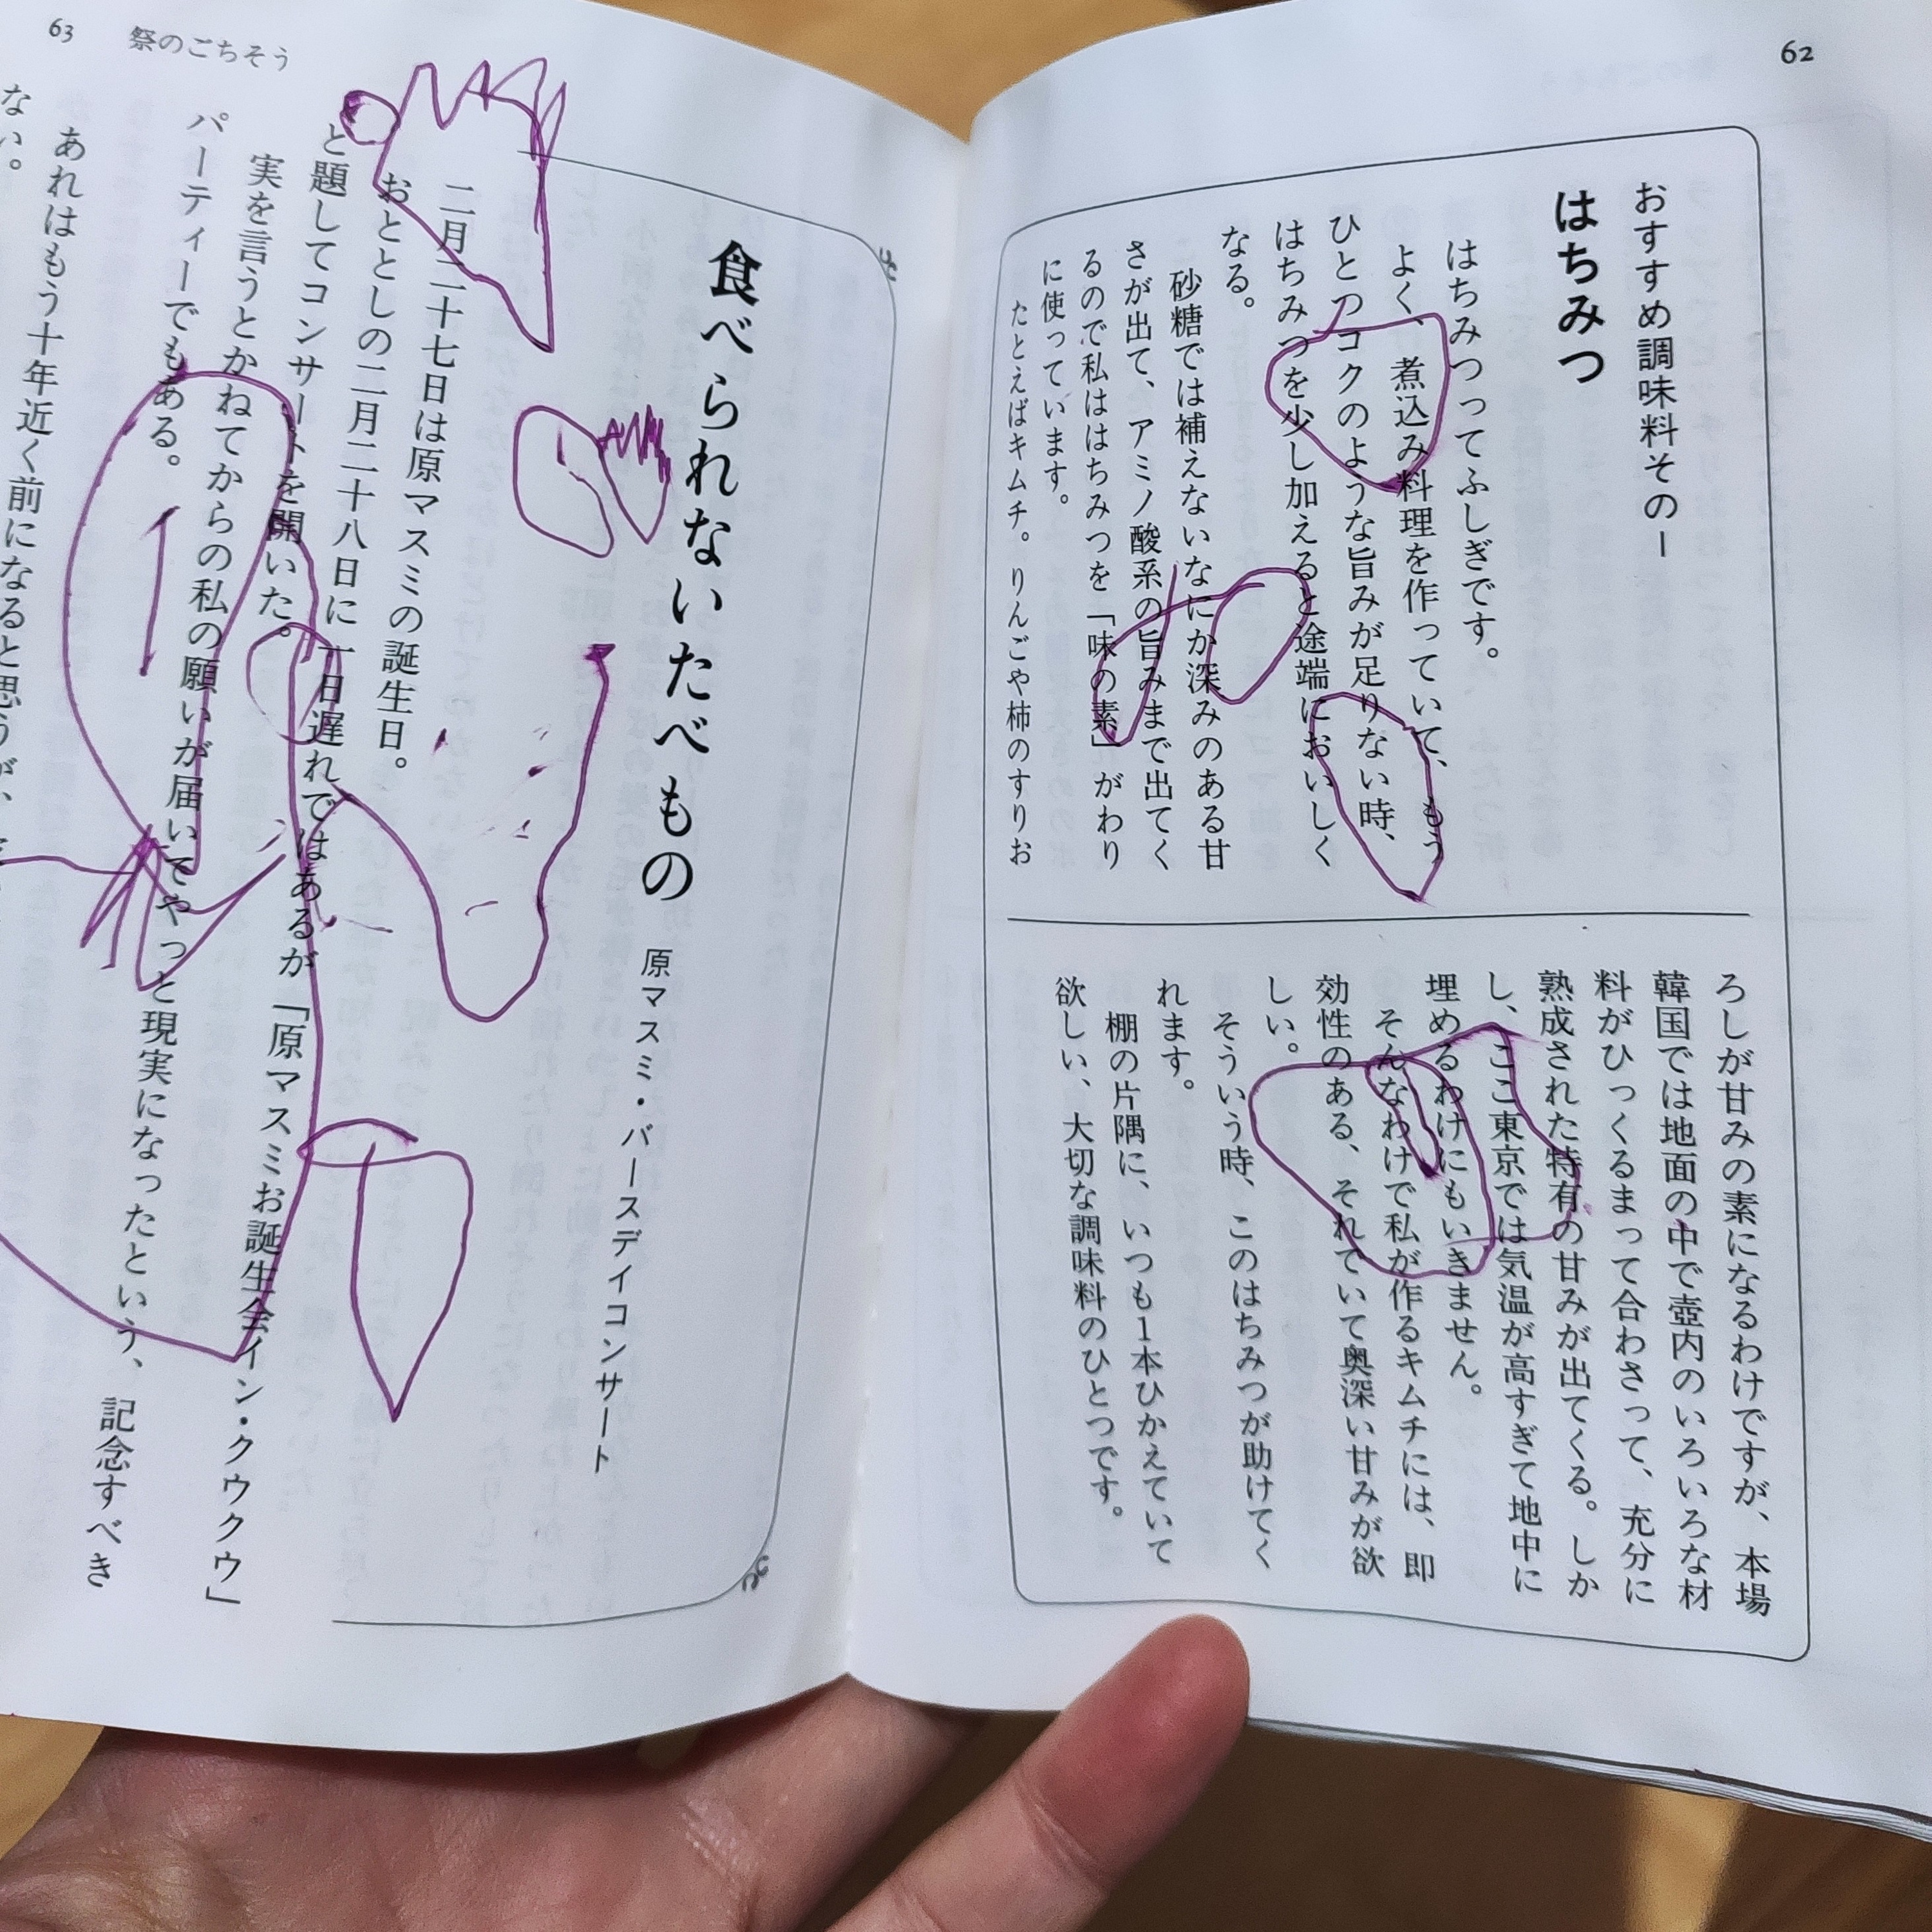 62
おすすめ調味料その一
はちみつ
はちみつってふしぎです。
よく、煮込み料理を作っていて、もう
ひとつコクのような旨みが足りない時、
はちみつを少し加えると途端においしく
なる。
砂糖では補えないなにか深みのある甘
さが出て、アミノ酸系の旨みまで出てく
るので私ははちみつを「味の素」がわり
に使っています。
たとえばキムチ。りんごや柿のすりお
ろしが甘みの素になるわけですが、本場
韓国では地面の中で壺内のいろいろな材
料がひっくるまって合わさって、充分に
熟成された特有の甘みが出てくる。しか
し、ここ東京では気温が高すぎて地中に
埋めるわけにもいきません。
そんなわけで私が作るキムチには、即
効性のある、それていて奥深い甘みが欲
しい。
そういう時、このはちみつが助けてく
れます。
棚の片隅に、いつも1本ひかえていて
欲しい、大切な調味料のひとつです。
63 祭のごちそう
食べられないいたべもの
原マスミ・バースデイコンサート
二月二十七日は原マスミの誕生日。
おととしの二月二十八日に一日遅れではあるが「原マスミお誕生会イン・クウクウ」
と題してコンサートを開いた。
実を言うとかねてからの私の願いが届いてやっと現実になったという、記念すべき
パーティーでもある。
あれはもう十年近く前になると思うが、
ない。